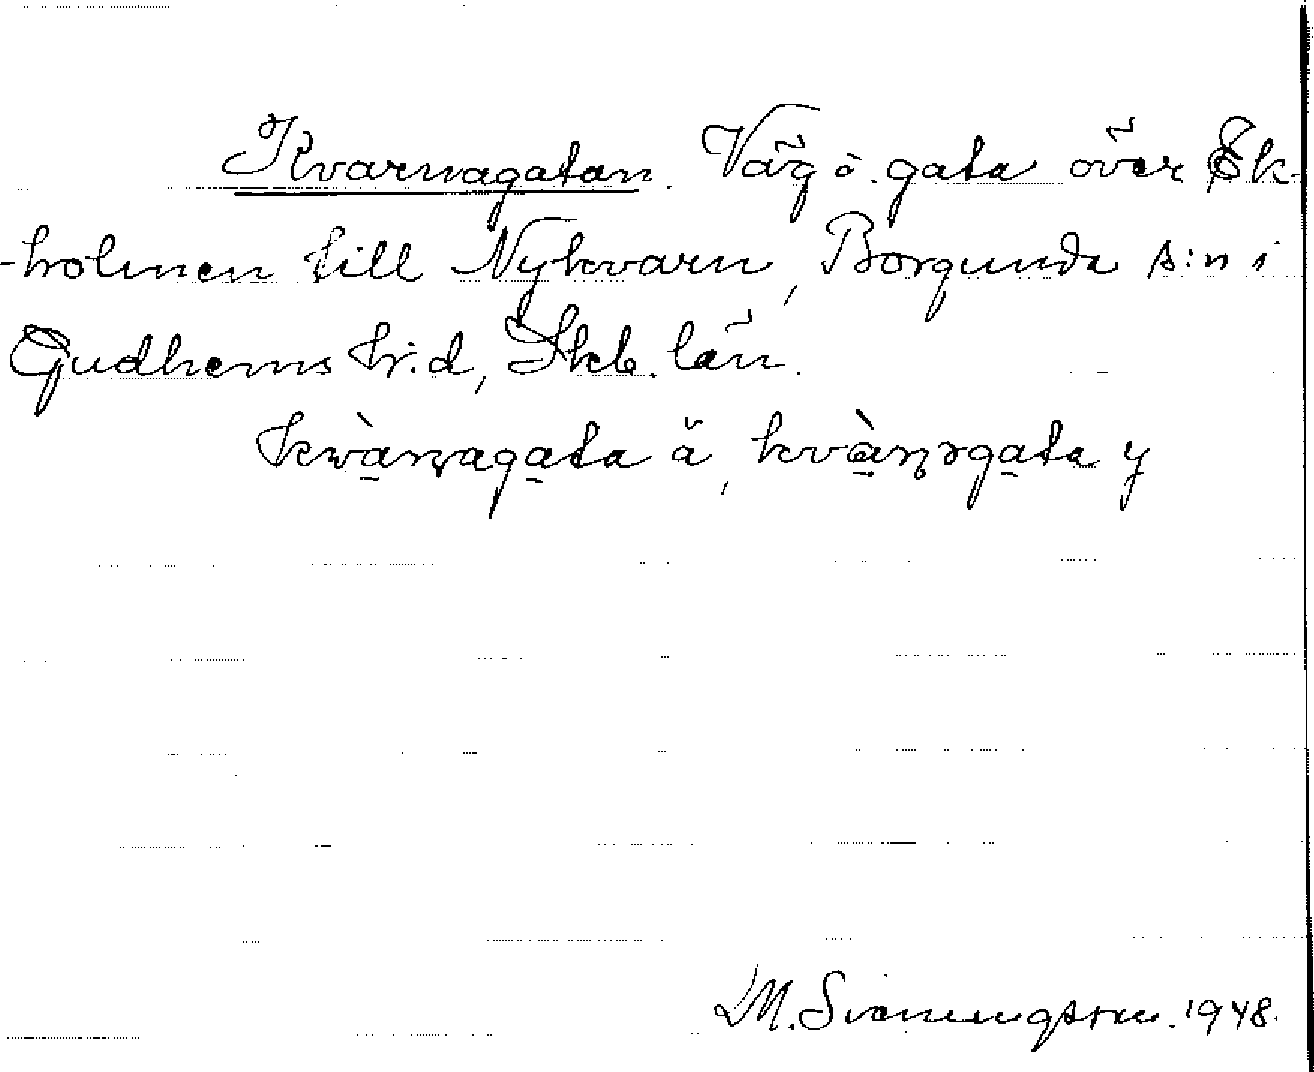 Kvarnagatan. Väg o. gata över Ek-
-holmen till Nykvarn, Borgunda s:n i
Gudhems hr:d, Skb. län.
kwàṇagata ä, kvàṇəgata y
M. Svenningsson. 1948.